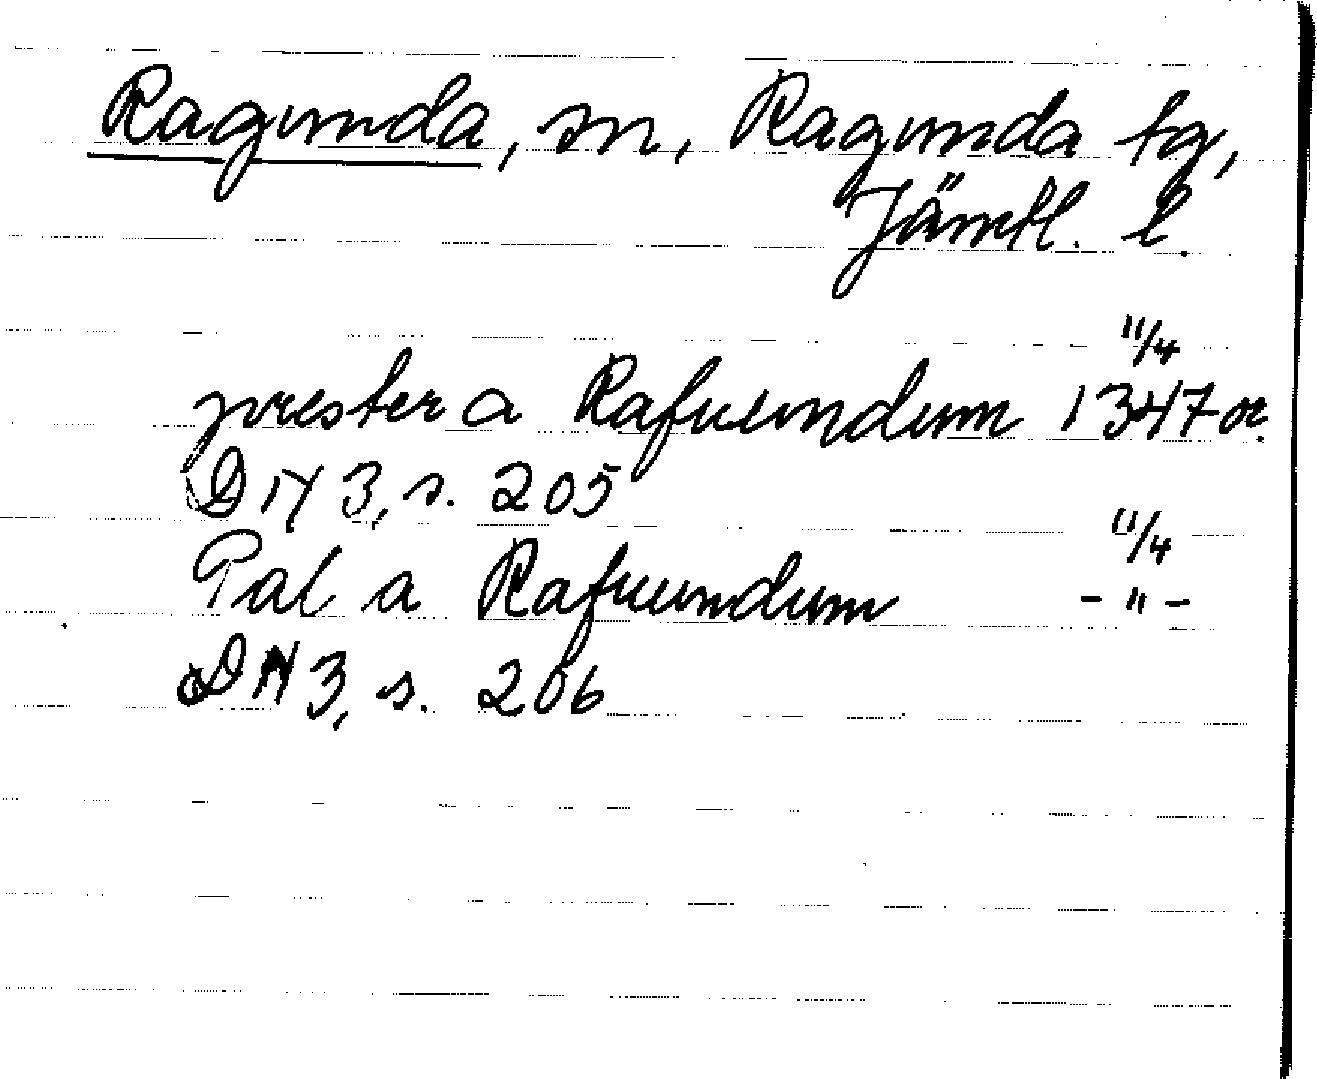 Ragunda, sn, Ragunda tg,
Jämtl. l.
11/4
prester a Rafuundum 1347 or.
DN 3, s. 205
11/4
Pal a Rafuundum - " -
DN 3, s. 206